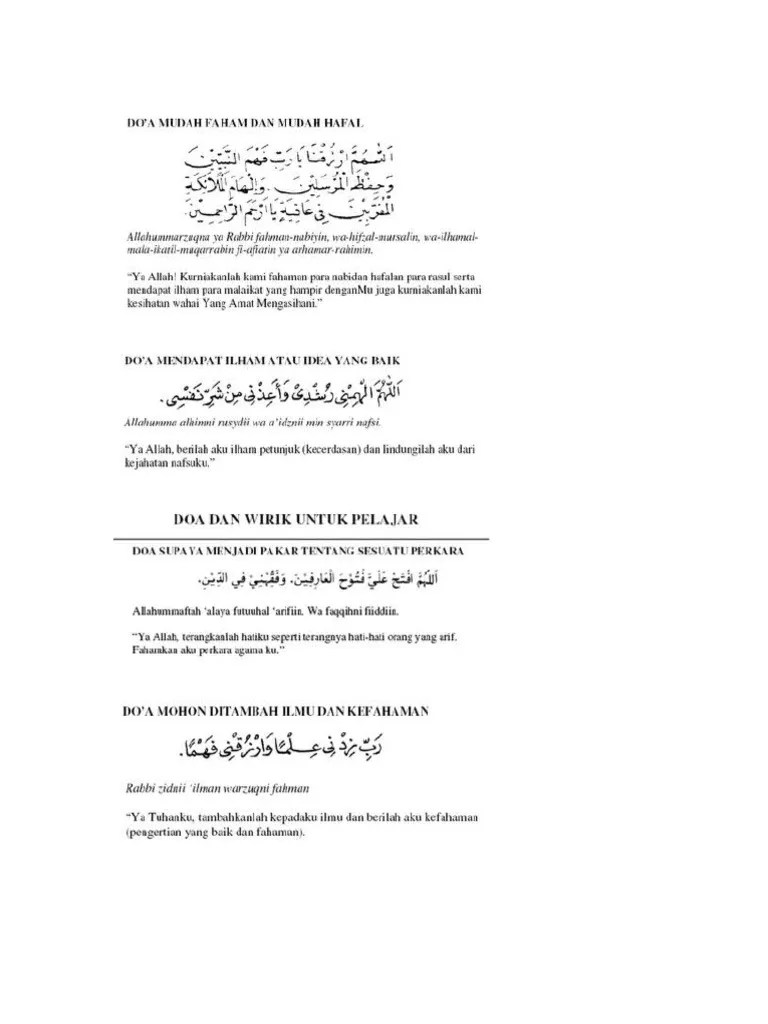 DO'A MUDAH FAHAM DAN MUDAH HAFAL
اَللّٰهُمَّ ارْزُقْنَا يَا رَبِّ فَهْمَ النَّبِيِّيْنَ
وَحِفْظَ الْمُرْسَلِيْنَ . وَاِلْهَامَ الْمَلَائِكَةِ
الْمُقَرَّبِيْنَ فِى عَافِيَةٍ يَا اَرْحَمَ الرَّاحِمِيْنَ.
Allahummarzuqna ya Rabbi fahman-nabiyin, wa-hifzal-mursalin, wa-ilhamal-
mala-ikatil-muqarrabin fi-afiatin ya arhamar-rahimin.
"Ya Allah! Kurniakanlah kami fahaman para nabidan hafalan para rasul serta
mendapat ilham para malaikat yang hampir denganMu juga kurniakanlah kami
kesihatan wahai Yang Amat Mengasihani."
DO'A MENDAPAT ILHAM ATAU IDEA YANG BAIK
اَللّٰهُمَّ اَلْهِمْنِى رُشْدِىْ وَأَعِذْنِى مِنْ شَرِّ نَفْسِى .
Allahumma alhimni rusydii wa a'idznii min syarri nafsi.
"Ya Allah, berilah aku ilham petunjuk (kecerdasan) dan lindungilah aku dari
kejahatan nafsuku."
DOA DAN WIRIK UNTUK PELAJAR
DOA SUPAYA MENJADI PAKAR TENTANG SESUATU PERKARA
اَللّٰهُمَّ افْتَحْ عَلَيَّ فُتُوْحَ الْعَارِفِيْنَ. وَفَقِّهْنِيْ فِي الدِّيْنِ.
Allahummaftah 'alaya futuuhal 'arifiin. Wa faqqihni fiiddiin.
"Ya Allah, terangkanlah hatiku seperti terangnya hati-hati orang yang arif.
Fahamkan aku perkara agama ku."
DO'A MOHON DITAMBAH ILMU DAN KEFAHAMAN
رَبِّ زِدْنِى عِلْمًا وَارْزُقْنِى فَهْمًا.
Rabbi zidnii 'ilman warzuqni fahman
"Ya Tuhanku, tambahkanlah kepadaku ilmu dan berilah aku kefahaman
(pengertian yang baik dan fahaman).